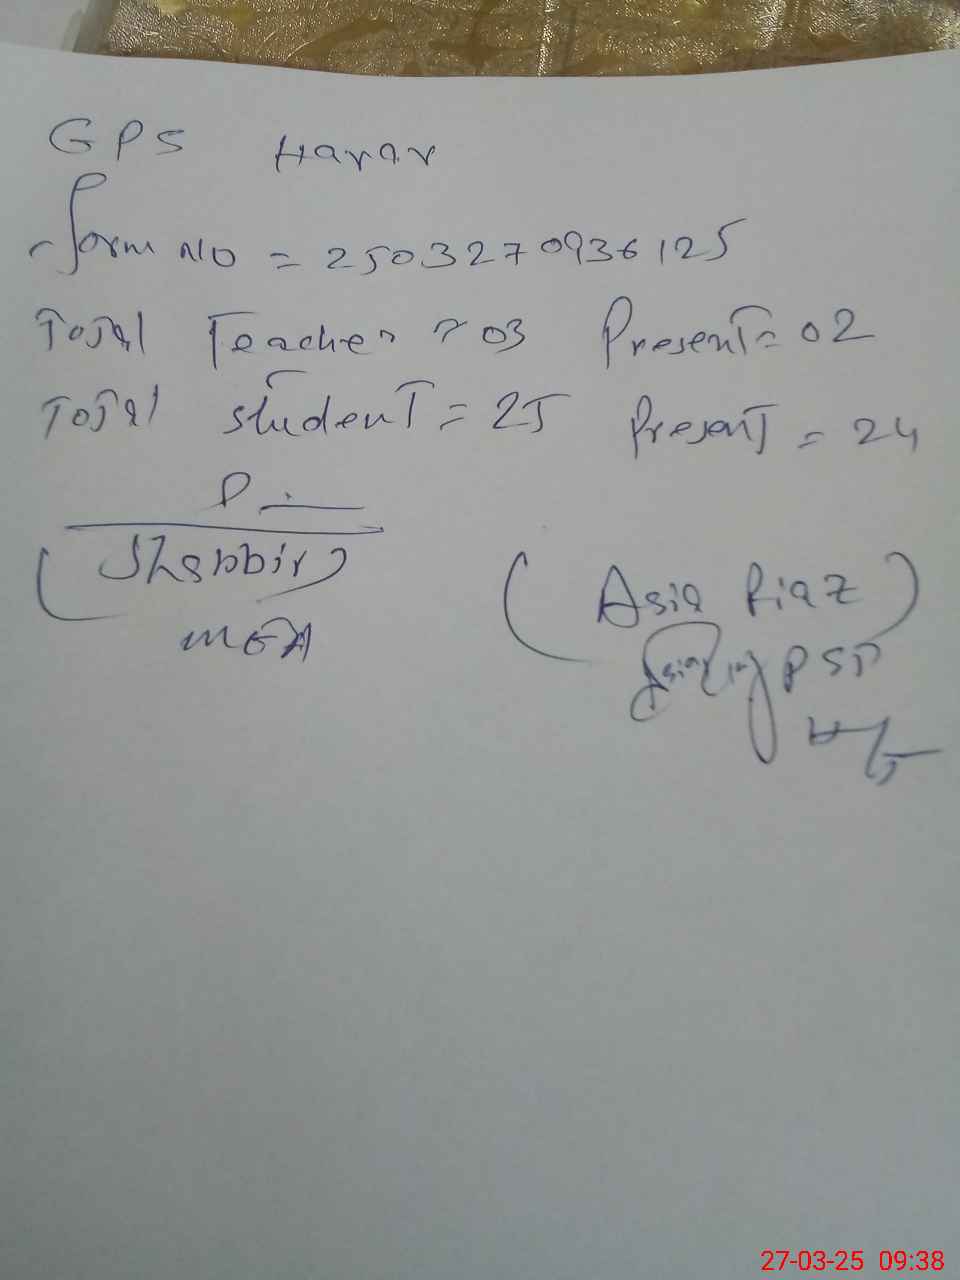 GPS Harar
Form NO = 2503270936125
Total Teacher = 03 Present = 02
Total student = 25 Present = 24
(Shabbir)
MEA
(Asia Riaz)
PST
27-03-25 09:38